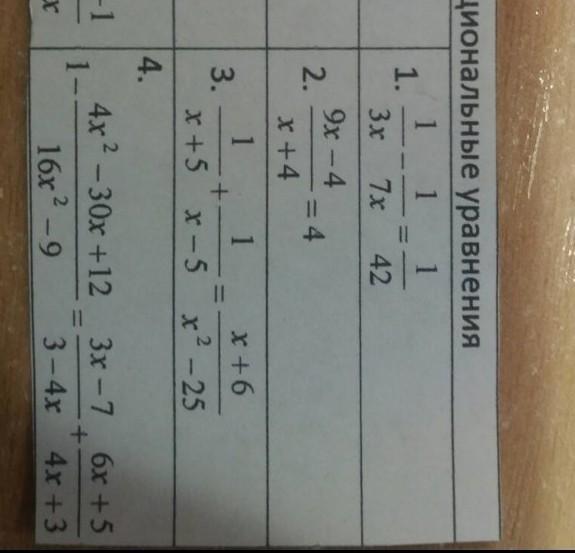 циональные уравнения
1. 1/3x − 1/7x = 1/42
2. (9x − 4)/(x + 4) = 4
3. 1/(x + 5) + 1/(x − 5) = (x + 6)/(x² − 25)
4.
1 − (4x² − 30x + 12)/(16x² − 9) = (3x − 7)/(3 − 4x) + (6x + 5)/(4x + 3)
−1
x